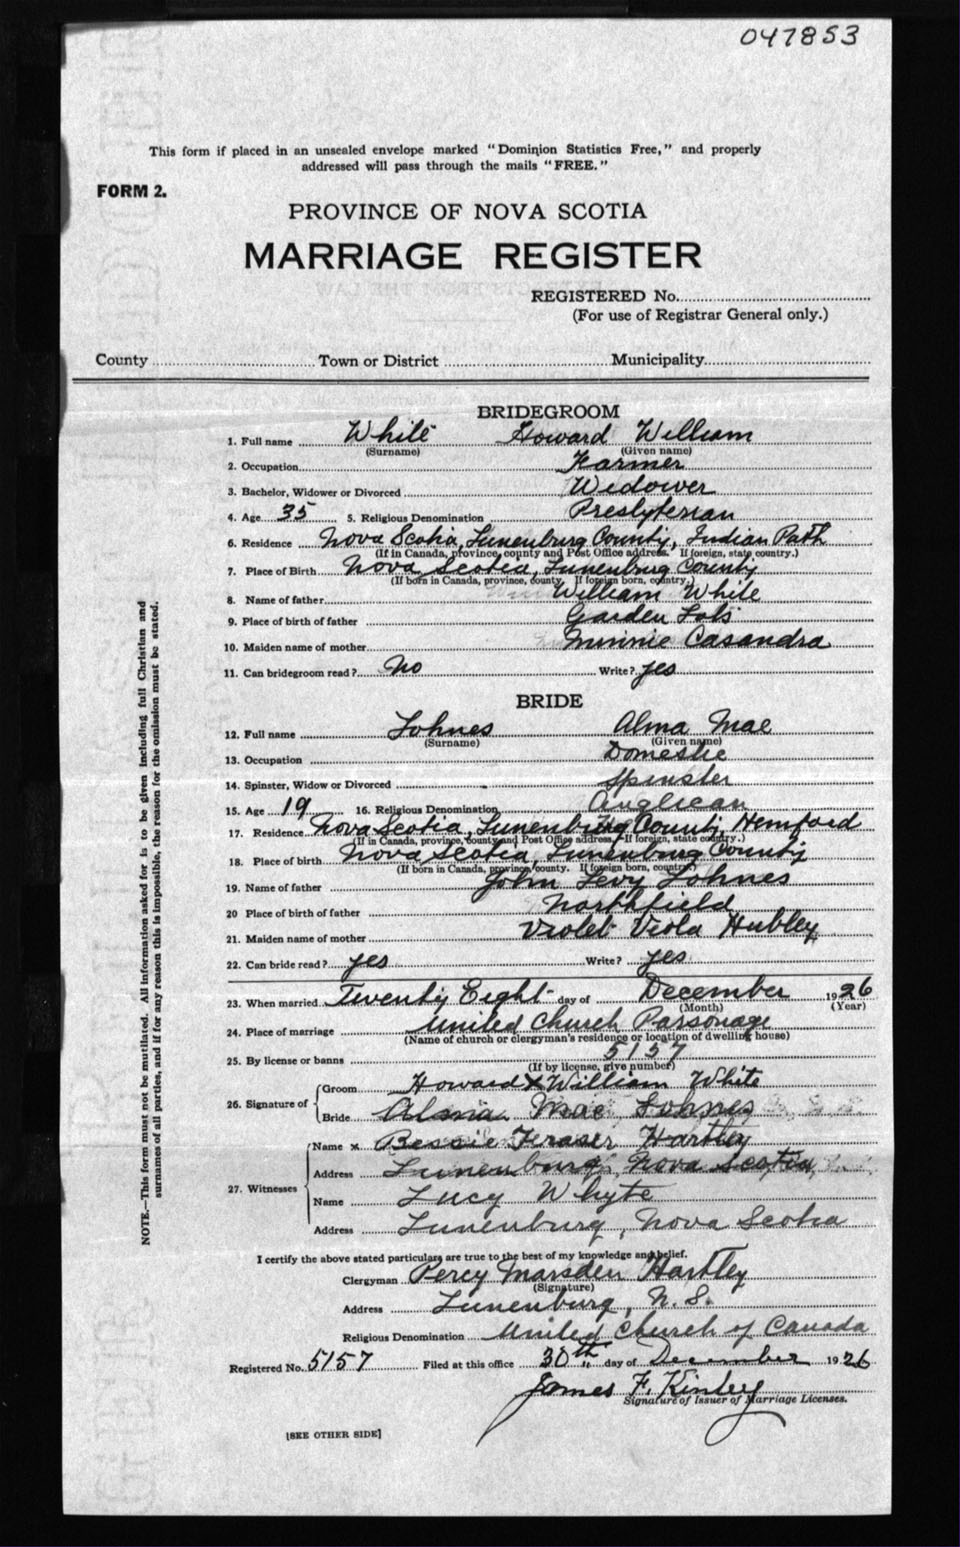 047853
This form if placed in an unsealed envelope marked "Dominion Statistics Free," and properly
addressed will pass through the mails "FREE."
FORM 2.
PROVINCE OF NOVA SCOTIA
MARRIAGE REGISTER
REGISTERED No.
(For use of Registrar General only.)
County Town or District Municipality
BRIDEGROOM
1. Full name White Howard William
(Surname) (Given name)
2. Occupation Farmer
3. Bachelor, Widower or Divorced Widower
4. Age 35 5. Religious Denomination Presbyterian
6. Residence Nova Scotia, Lunenburg County, Indian Path
(If in Canada, province, county and Post Office address. If foreign, state country.)
7. Place of Birth Nova Scotia, Lunenburg County
(If born in Canada, province, county. If foreign born, country.)
8. Name of father William White
9. Place of birth of father Garden Lots
10. Maiden name of mother Minnie Casandra
11. Can bridegroom read? No Write? yes
BRIDE
12. Full name Lohnes Alma Mae
(Surname) (Given name)
13. Occupation Domestic
14. Spinster, Widow or Divorced Spinster
15. Age 19 16. Religious Denomination Anglican
17. Residence Nova Scotia, Lunenburg County, Hemford
(If in Canada, province, county and Post Office address. If foreign, state country.)
18. Place of birth Nova Scotia, Lunenburg County
(If born in Canada, province, county. If foreign born, country.)
19. Name of father John Levy Lohnes
20 Place of birth of father Northfield
21. Maiden name of mother Violet Viola Hubley
22. Can bride read? yes Write? yes
23. When married Twenty Eight day of December 1926
(Month) (Year)
24. Place of marriage United Church Parsonage
(Name of church or clergyman's residence or location of dwelling house)
25. By license or banns 5157
(If by license, give number)
26. Signature of
Groom Howard X William White
Bride Alma Mae Lohnes
27. Witnesses
Name x Bessie Fraser Hartley
Address Lunenburg, Nova Scotia,
Name Lucy Whyte
Address Lunenburg, Nova Scotia
I certify the above stated particulars are true to the best of my knowledge and belief.
Clergyman Percy Marsden Hartley
(Signature)
Address Lunenburg, N.S.
Religious Denomination United Church of Canada
Registered No. 5157 Filed at this office 30th day of December 1926
James F. Kinley
Signature of Issuer of Marriage Licenses.
[SEE OTHER SIDE]
NOTE.—This form must not be mutilated. All information asked for is to be given including full Christian and
surnames of all parties, and if for any reason this is impossible, the reason for the omission must be stated.